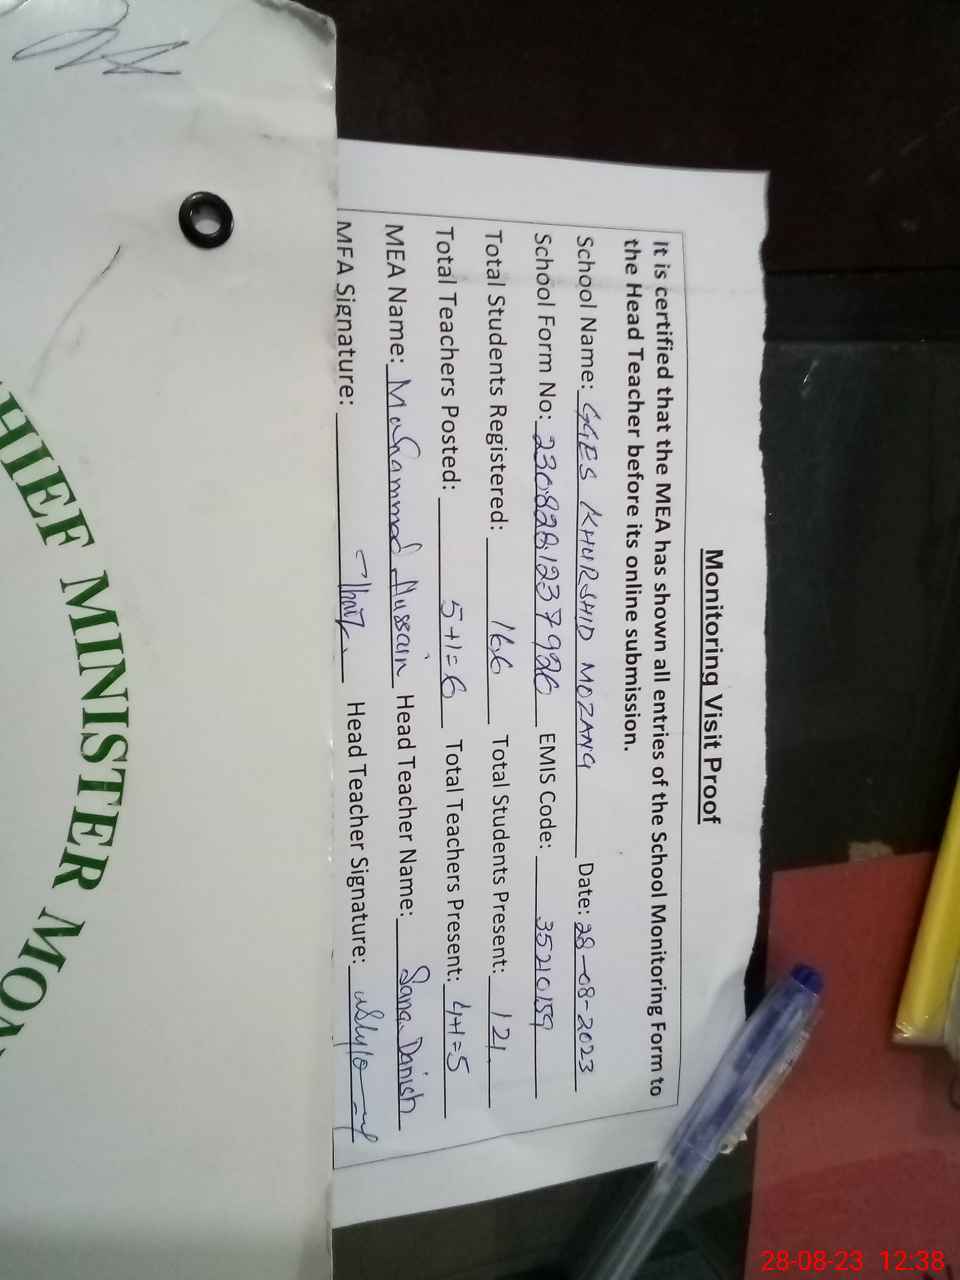 Monitoring Visit Proof
It is certified that the MEA has shown all entries of the School Monitoring Form to
the Head Teacher before its online submission.
School Name: GGES KHURSHID MOZANG Date: 28-08-2023
School Form No: 2308281237926 EMIS Code: 35210159
Total Students Registered: 166 Total Students Present: 121
Total Teachers Posted: 5+1=6 Total Teachers Present: 4+1=5
MEA Name: Muhammad Hussain Head Teacher Name: Sana Danish
MFA Signature: Head Teacher Signature:
HIEF MINISTER MON
28-08-23 12:38